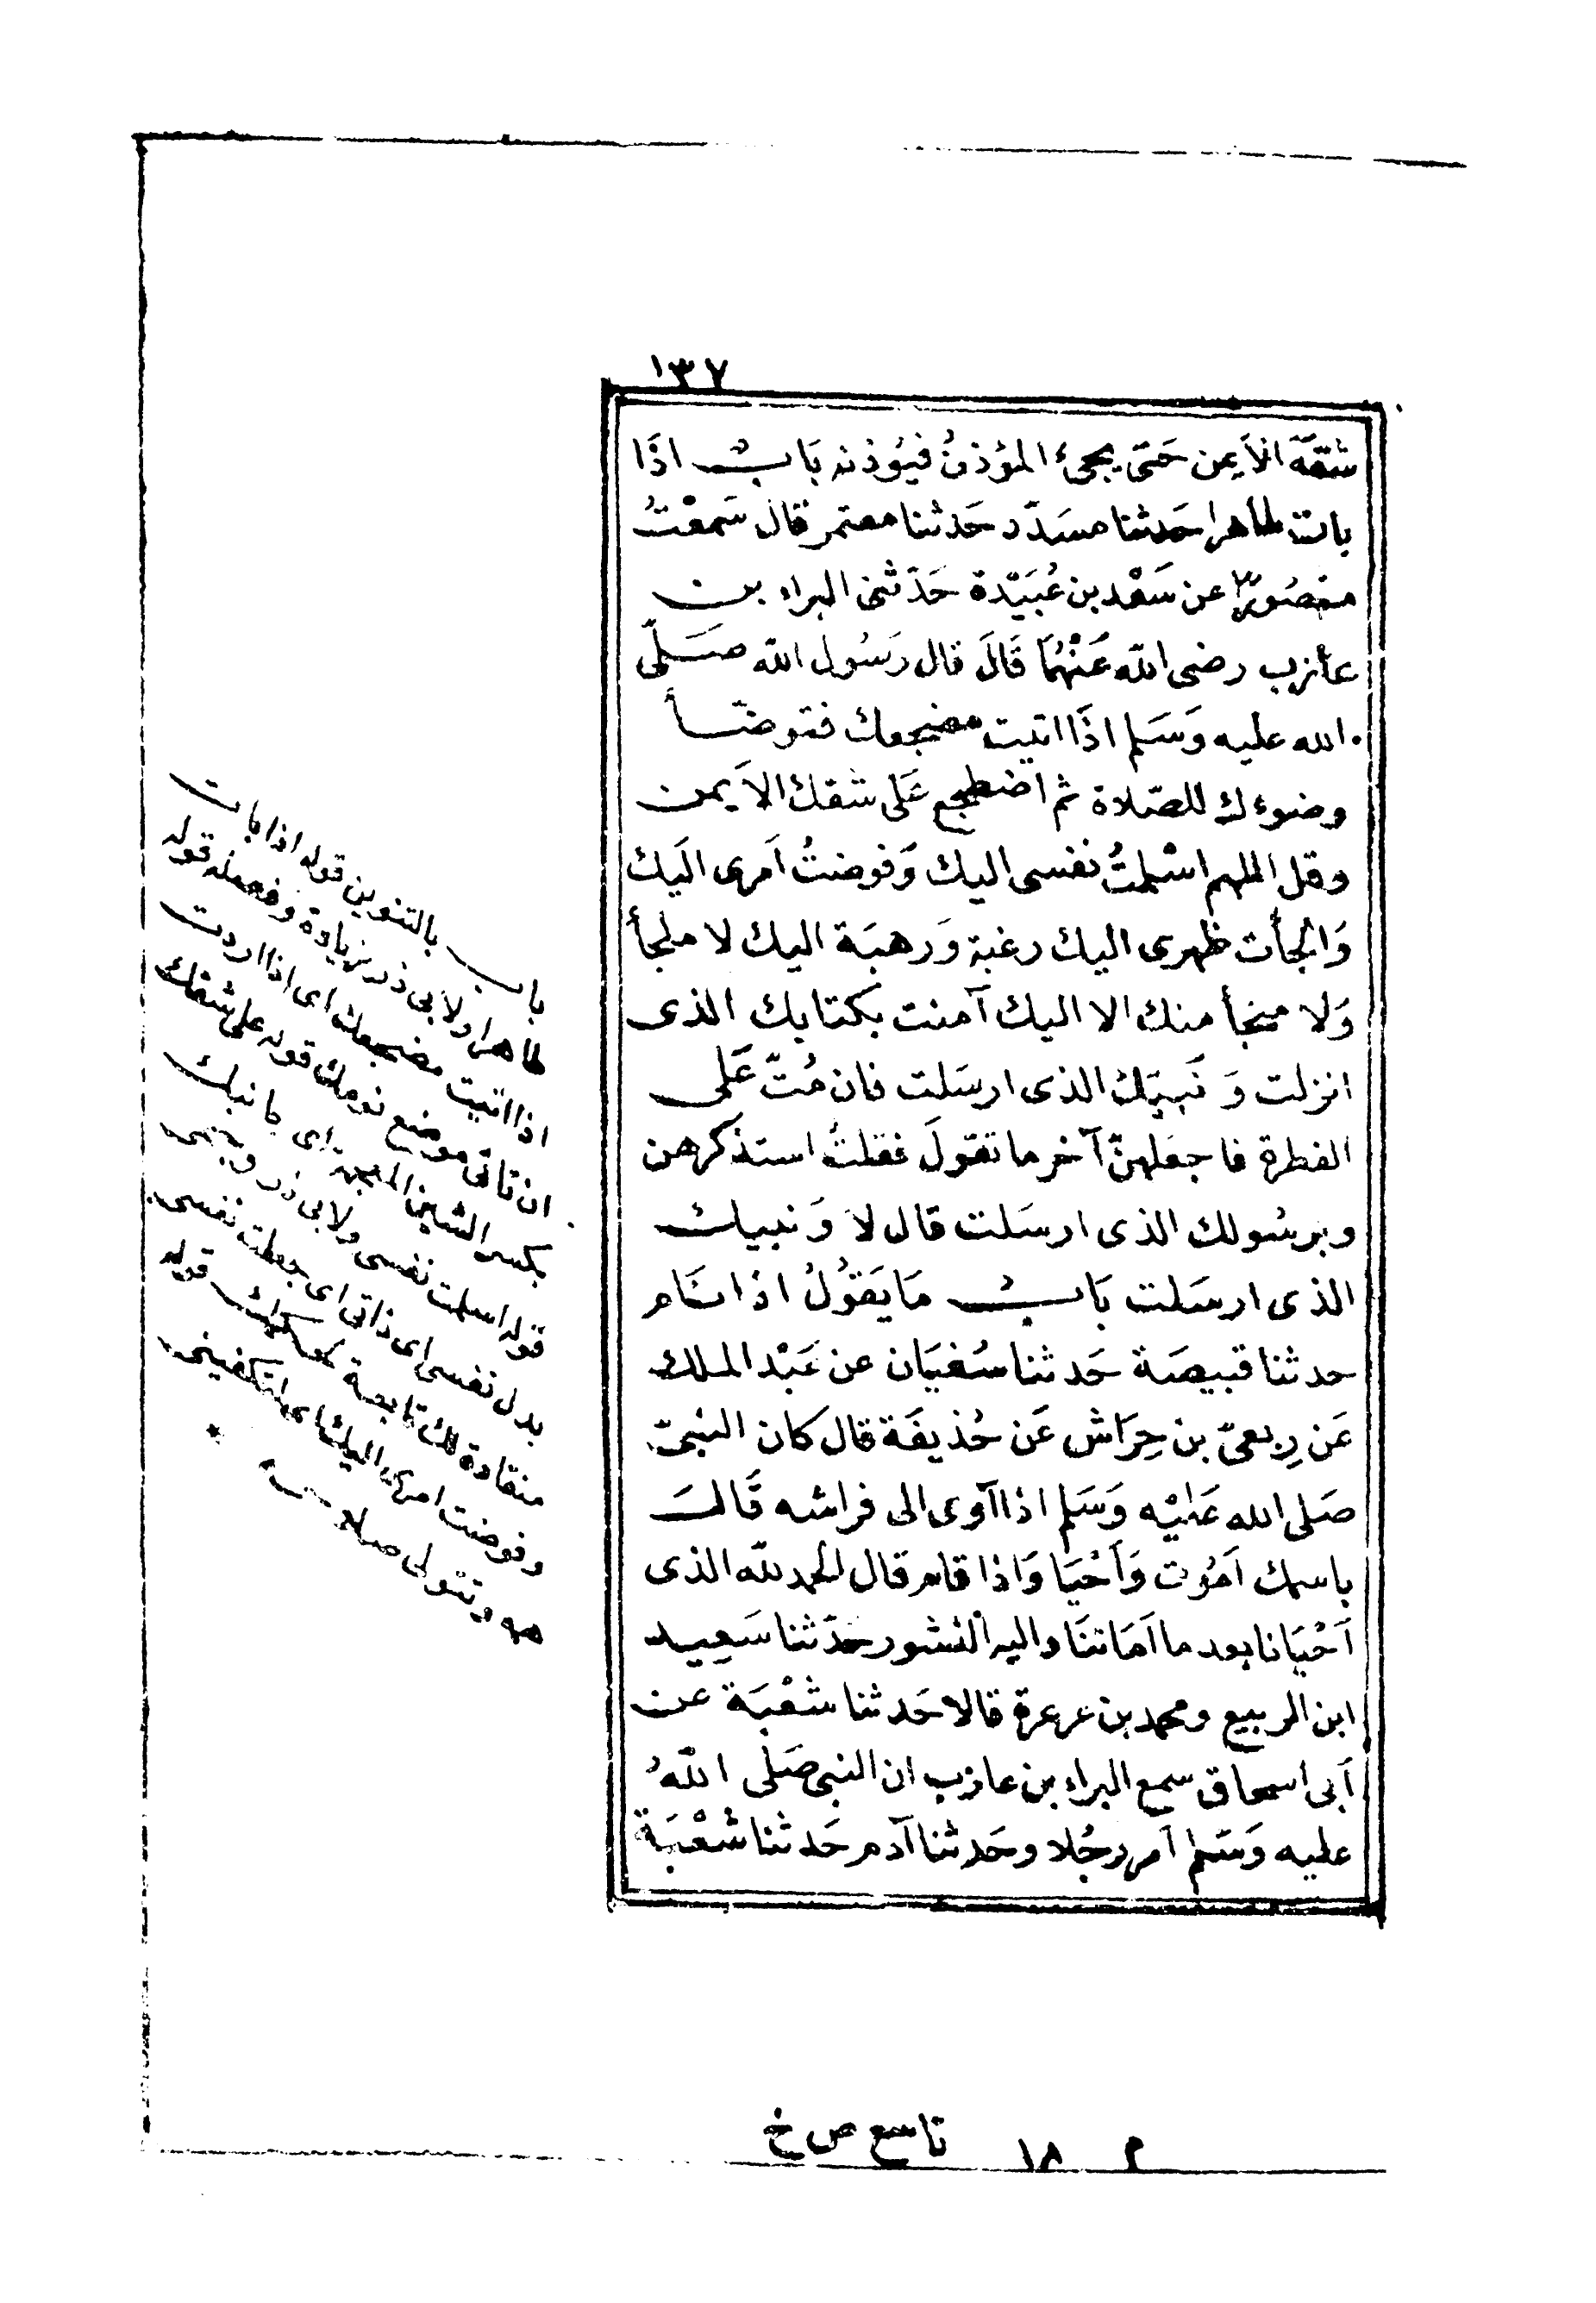 ١٣٧
شقّهَ الاَيمن حَتى يجىءَ المؤذنُ فيُوذنه بَابٌ اذَا
بات طاهرا حَدثنا مسَدّد حَدثنا معتمر قال سَمعْتُ
منصُورًا عن سَعْد بن عُبَيْدة حَدّثنى البراء بن
عازب رضى الله عَنْهُمَا قَالَ قال رَسُول الله صَلّى
الله عليه وَسَلم اذَا اتيت مضجعك فتوضّأ
وضوءك للصّلاة ثم اضطجع عَلى شقك الاَيمن
وقل اللهم اسْلمتُ نفسى اليك وَفوضتُ اَمرى الَيك
وَالجأت ظهرى اليك رغبة وَرهبَة اليك لا ملجأ
وَلا منجأ منك الا اليك آمنت بكتابك الذى
انزلت وَ نَبيّك الذى ارسَلت فان مُتّ عَلى
الفطرة فاجعَلهنّ آخر ما تقولَ فقلتُ استذكرهن
وبرسُولك الذى ارسَلت قال لاَ وَ نبيك
الذى ارسَلت بَابُ مَا يَقوُلُ اذا نَام
حدثنا قبيصَة حَدثنا سُفيَان عن عَبْد الملك
عَن رِبعىّ بن حِرَاش عَن حُذيفَة قال كان النبىّ
صَلى الله عَليْه وَسَلم اذا آوى الى فراشه قَالَ
باسمك اَمُوت وَاَحْيَا وَاذا قام قال الحمد لله الذى
اَحْيَانا بعد ما اَمَاتنَا واليه النشور حدّثنا سَعِيد
ابن الربيع ومحمد بن عرعرة قالا حَدثنا شعْبَة عن
اَبى اسحاق سمع البراء بن عازب ان النبى صَلى اللهُ
عليه وَسَلم اَمر رجُلا وحَدثنا آدم حَدثنا شعْبَة
باب بالتنوين قوله اذا بات
طاهرا ولابى ذر زيادة وفضله قوله
اذا اتيت مضجعك اى اذا اردت
ان تاتى موضع نومك قوله على شقك
بكسر الشين المعجمة اى جانبك
قوله اسلمت نفسى ولابى ذر وجهى
بدل نفسى اى ذاتى اى جعلت نفسى
منقادة لك تابعة لحكمك قوله
وفوضت امرى اليك اى لتكفينى
همه وتتولى صلاحه
م ١٨ تاسع ص خ